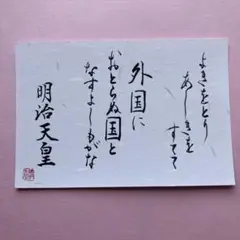 よきをとり
あしきを
すてて
外国に
おとらぬ国と
なすよしもがな
明治天皇